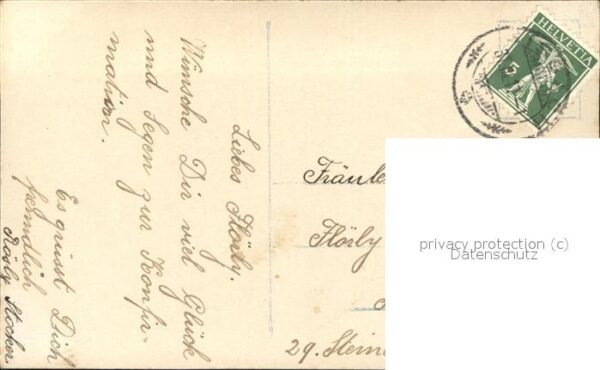 Liebes Flörly.
Wünsche Dir viel Glück
und Segen zur Konfir-
mation.
Es grüsst Dich
freundlich
Rösly Stocker.
HELVETIA
5
Fräule
Flörly
29. Stein
privacy protection (c)
Datenschutz